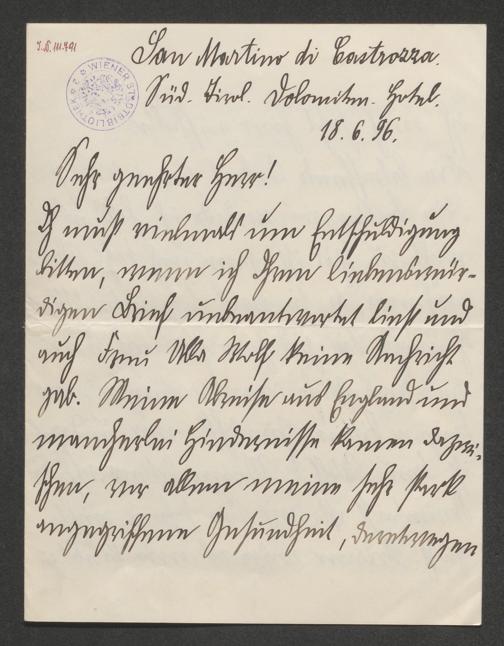 I.N. 111.791
WIENER STADTBIBLIOTHEK
San Martino di Castrozza.
Süd-Tirol. Dolomiten-Hotel.
18.6.96.
Sehr geehrter Herr!
Ich muß vielmals um Entschuldigung
bitten, wenn ich Ihren liebenswür-
digen Brief unbeantwortet ließ und
auch Frau Ulla Wolf keine Nachricht
gab. Meine Abreise aus England und
mancherlei Hindernisse kamen dazwi-
schen, vor allem meine sehr stark
angegriffene Gesundheit, derentwegen